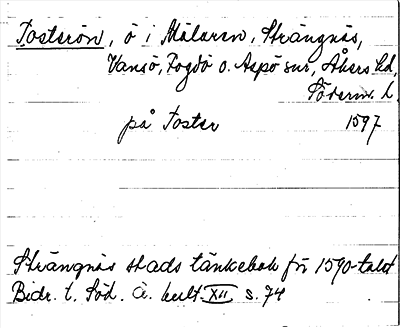 Tosterön, ö i Mälaren, Strängnäs,
Vansö, Fogdö o. Aspö snr, Åkers hd,
Söderm. l.
på Toster 1597
Strängnäs stads tänkebok för 1590-talet
Bidr. t. Söd. ä. kult. XII s. 74